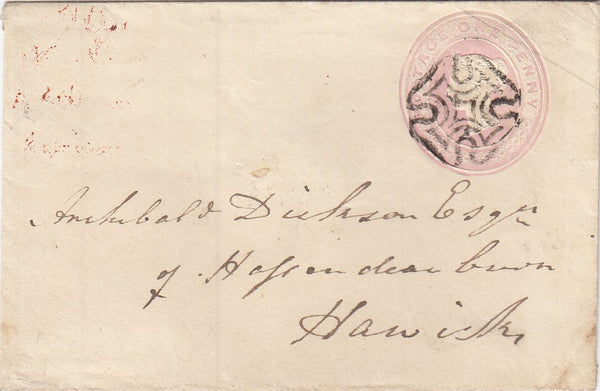 POSTAGE ONE PENNY
Archibald Dickson Esqr
of Hassendeanburn
Hawick